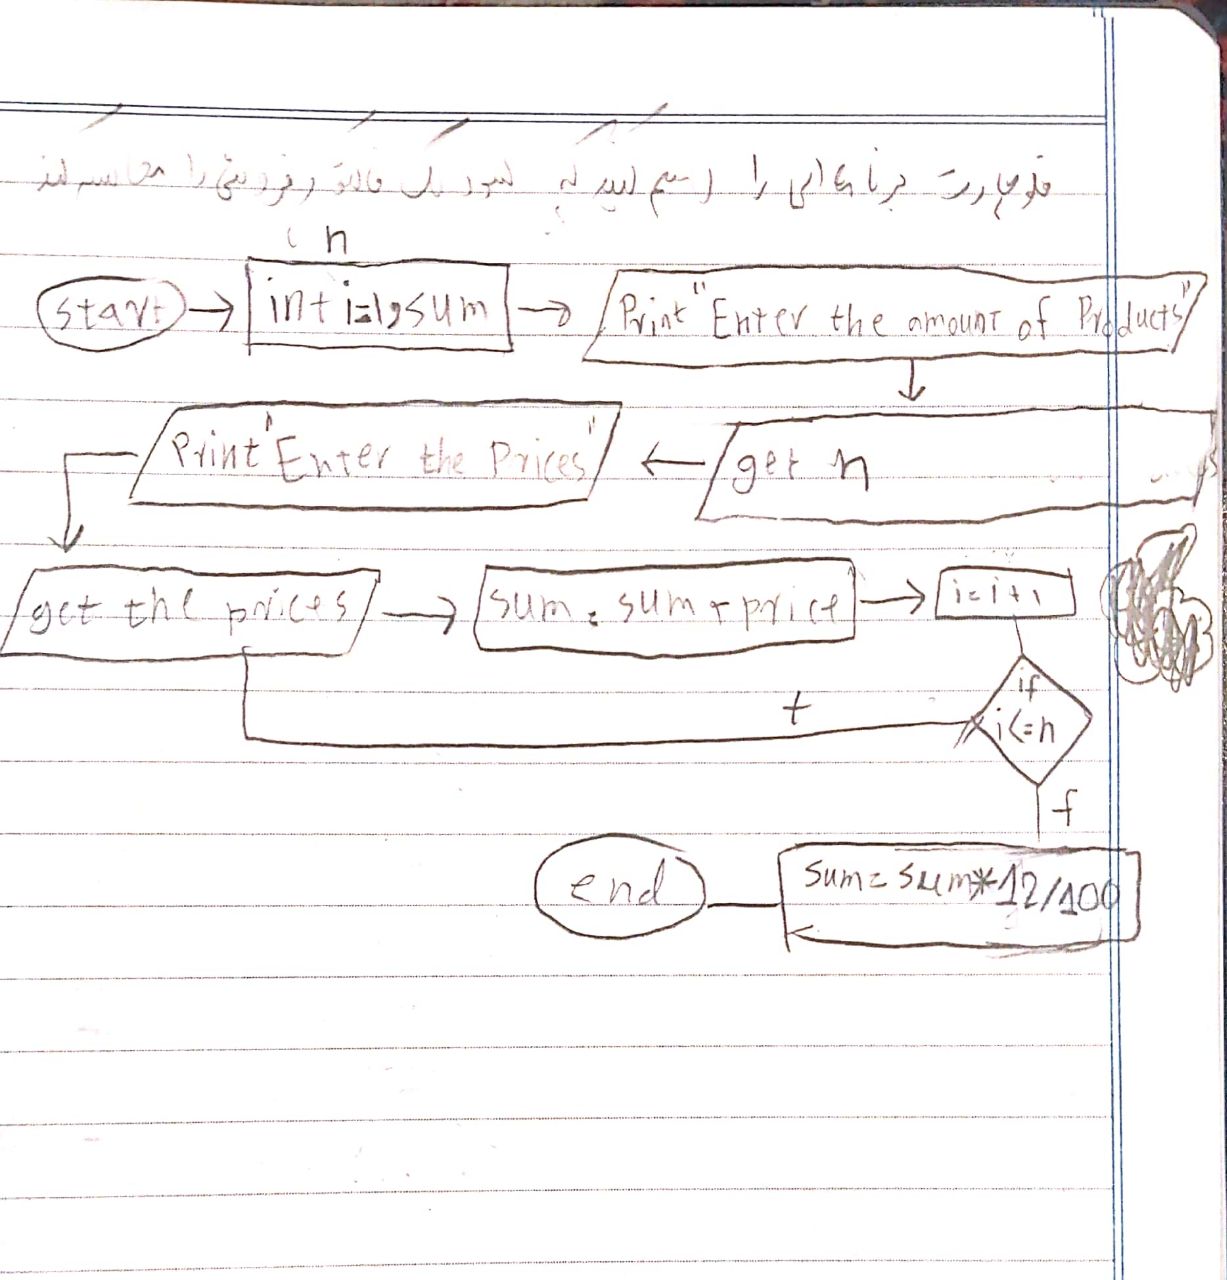 فلوچارت برنامه‌ای را رسم کنید که سود یک فاکتور فروشی را محاسبه کند
n
start
int i=1,sum
Print "Enter the amount of Products"
get n
Print "Enter the Prices"
get the prices
sum = sum + price
i=i+1
if
i<=n
t
f
sum=sum*12/100
end